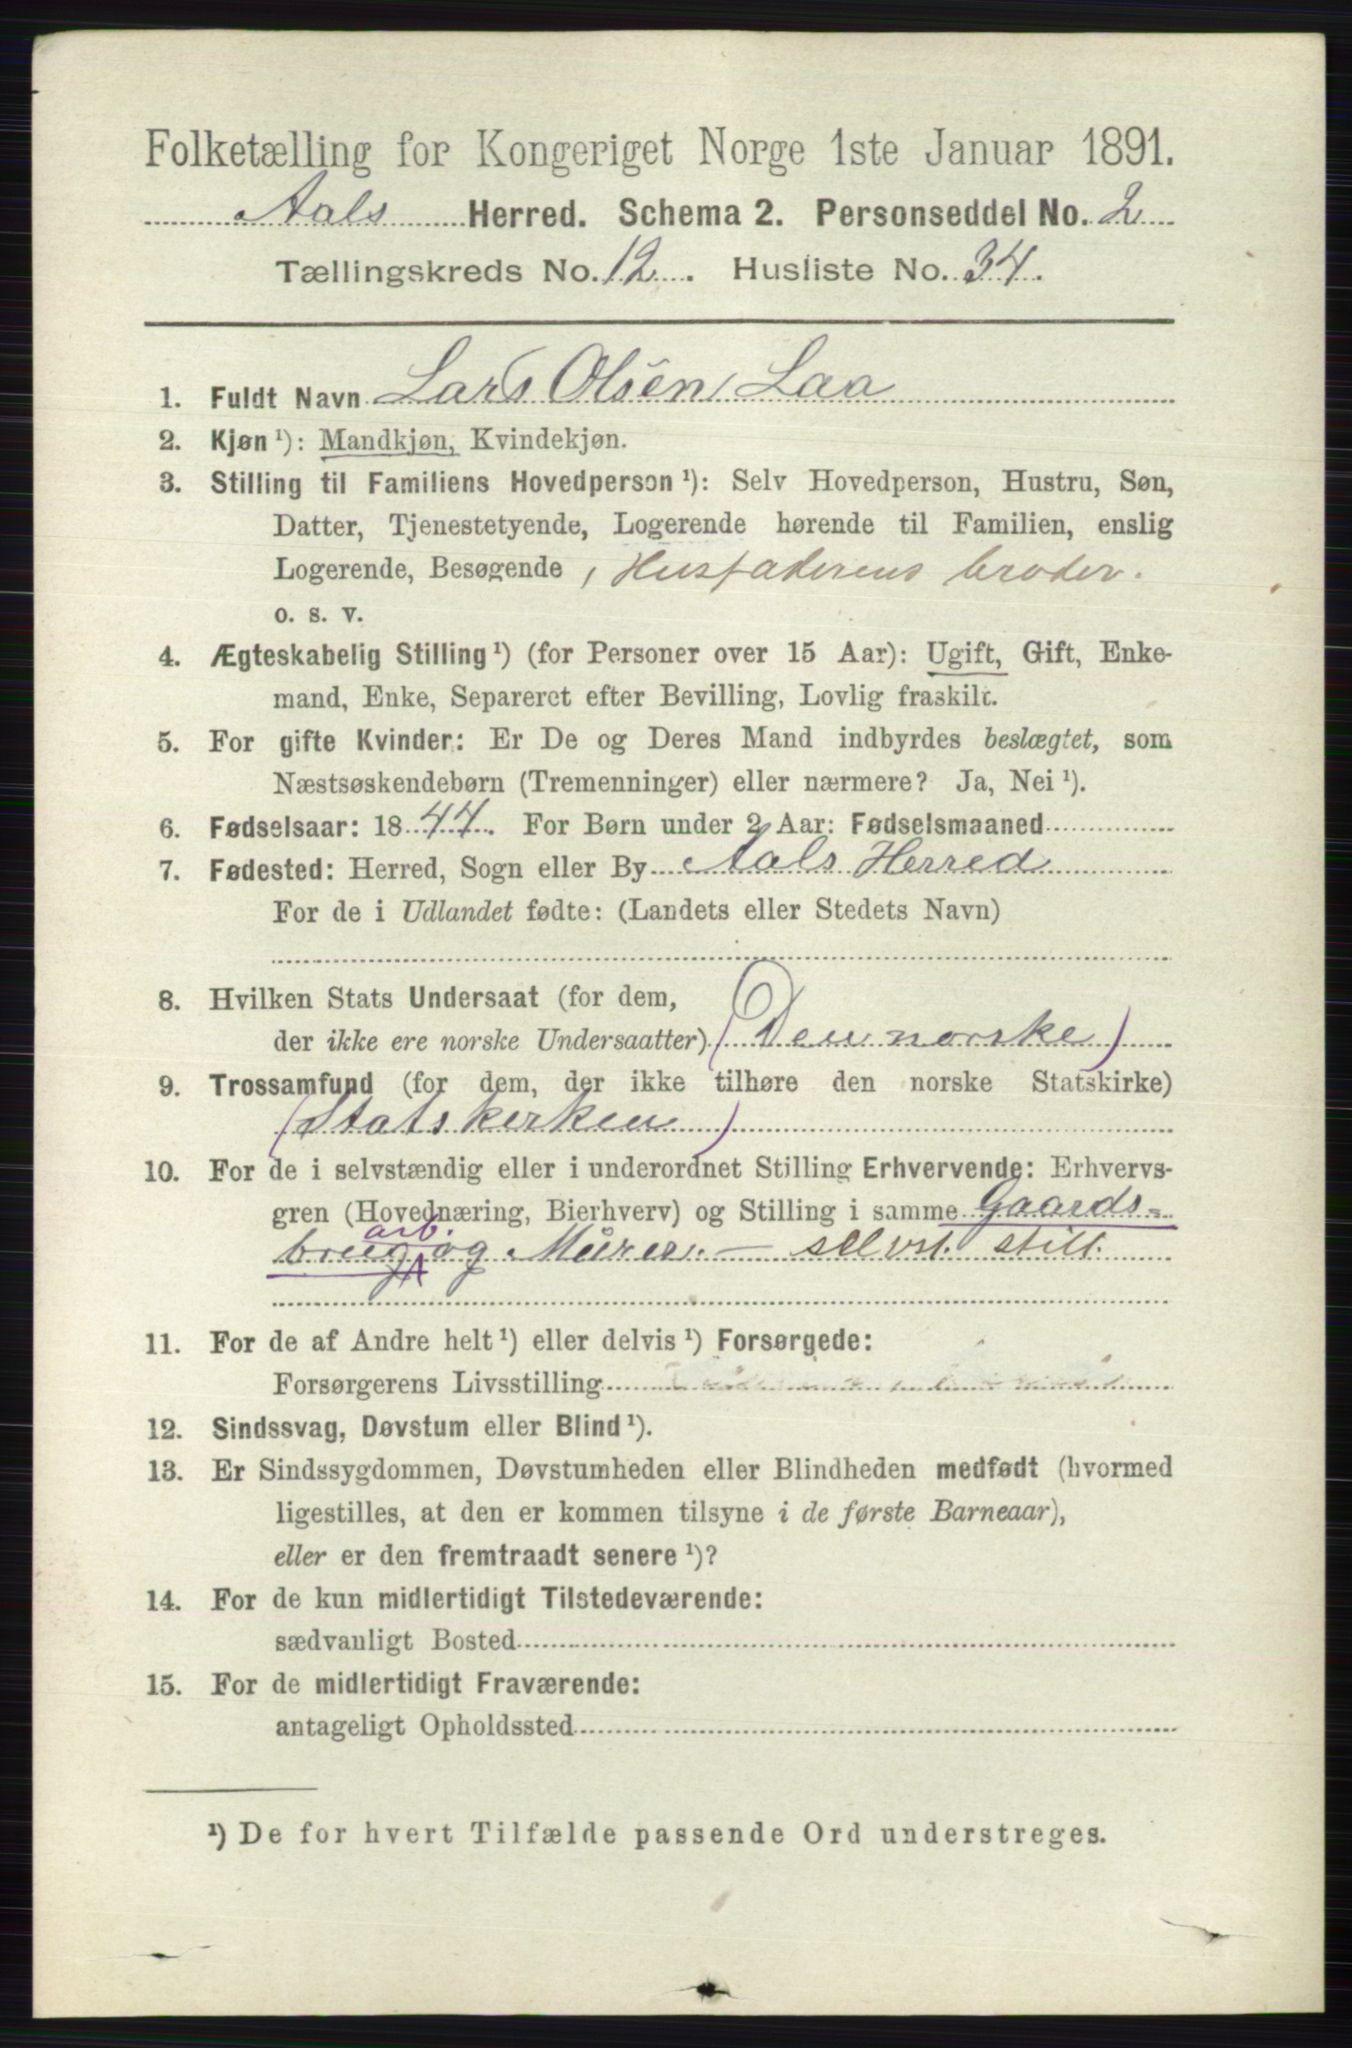 Folketælling for Kongeriget Norge 1ste Januar 1891.
Aals Herred. Schema 2. Personseddel No. 2
Tællingskreds No. 12. Husliste No. 34.
1. Fuldt Navn Lars Olsen Laa
2. Kjøn ¹): Mandkjøn, Kvindekjøn.
3. Stilling til Familiens Hovedperson ¹): Selv Hovedperson, Hustru, Søn,
Datter, Tjenestetyende, Logerende hørende til Familien, enslig
Logerende, Besøgende, Husfaderens broder.
o. s. v.
4. Ægteskabelig Stilling ¹) (for Personer over 15 Aar): Ugift, Gift, Enke-
mand, Enke, Separeret efter Bevilling, Lovlig fraskilt.
5. For gifte Kvinder: Er De og Deres Mand indbyrdes beslægtet, som
Næstsøskendebørn (Tremenninger) eller nærmere? Ja, Nei ¹).
6. Fødselsaar: 1844. For Børn under 2 Aar: Fødselsmaaned
7. Fødested: Herred, Sogn eller By Aals Herred
For de i Udlandet fødte: (Landets eller Stedets Navn)
8. Hvilken Stats Undersaat (for dem,
der ikke ere norske Undersaatter) (Den norske)
9. Trossamfund (for dem, der ikke tilhøre den norske Statskirke)
(Statskerken)
10. For de i selvstændig eller i underordnet Stilling Erhvervende: Erhvervs-
gren (Hovednæring, Bierhverv) og Stilling i samme Gaards-
arb.
brug og Murer. - selvst. still.
11. For de af Andre helt ¹) eller delvis ¹) Forsørgede:
Forsørgerens Livsstilling
12. Sindssvag, Døvstum eller Blind ¹).
13. Er Sindssygdommen, Døvstumheden eller Blindheden medfødt (hvormed
ligestilles, at den er kommen tilsyne i de første Barneaar),
eller er den fremtraadt senere ¹)?
14. For de kun midlertidigt Tilstedeværende:
sædvanligt Bosted
15. For de midlertidigt Fraværende:
antageligt Opholdssted
¹) De for hvert Tilfælde passende Ord understreges.